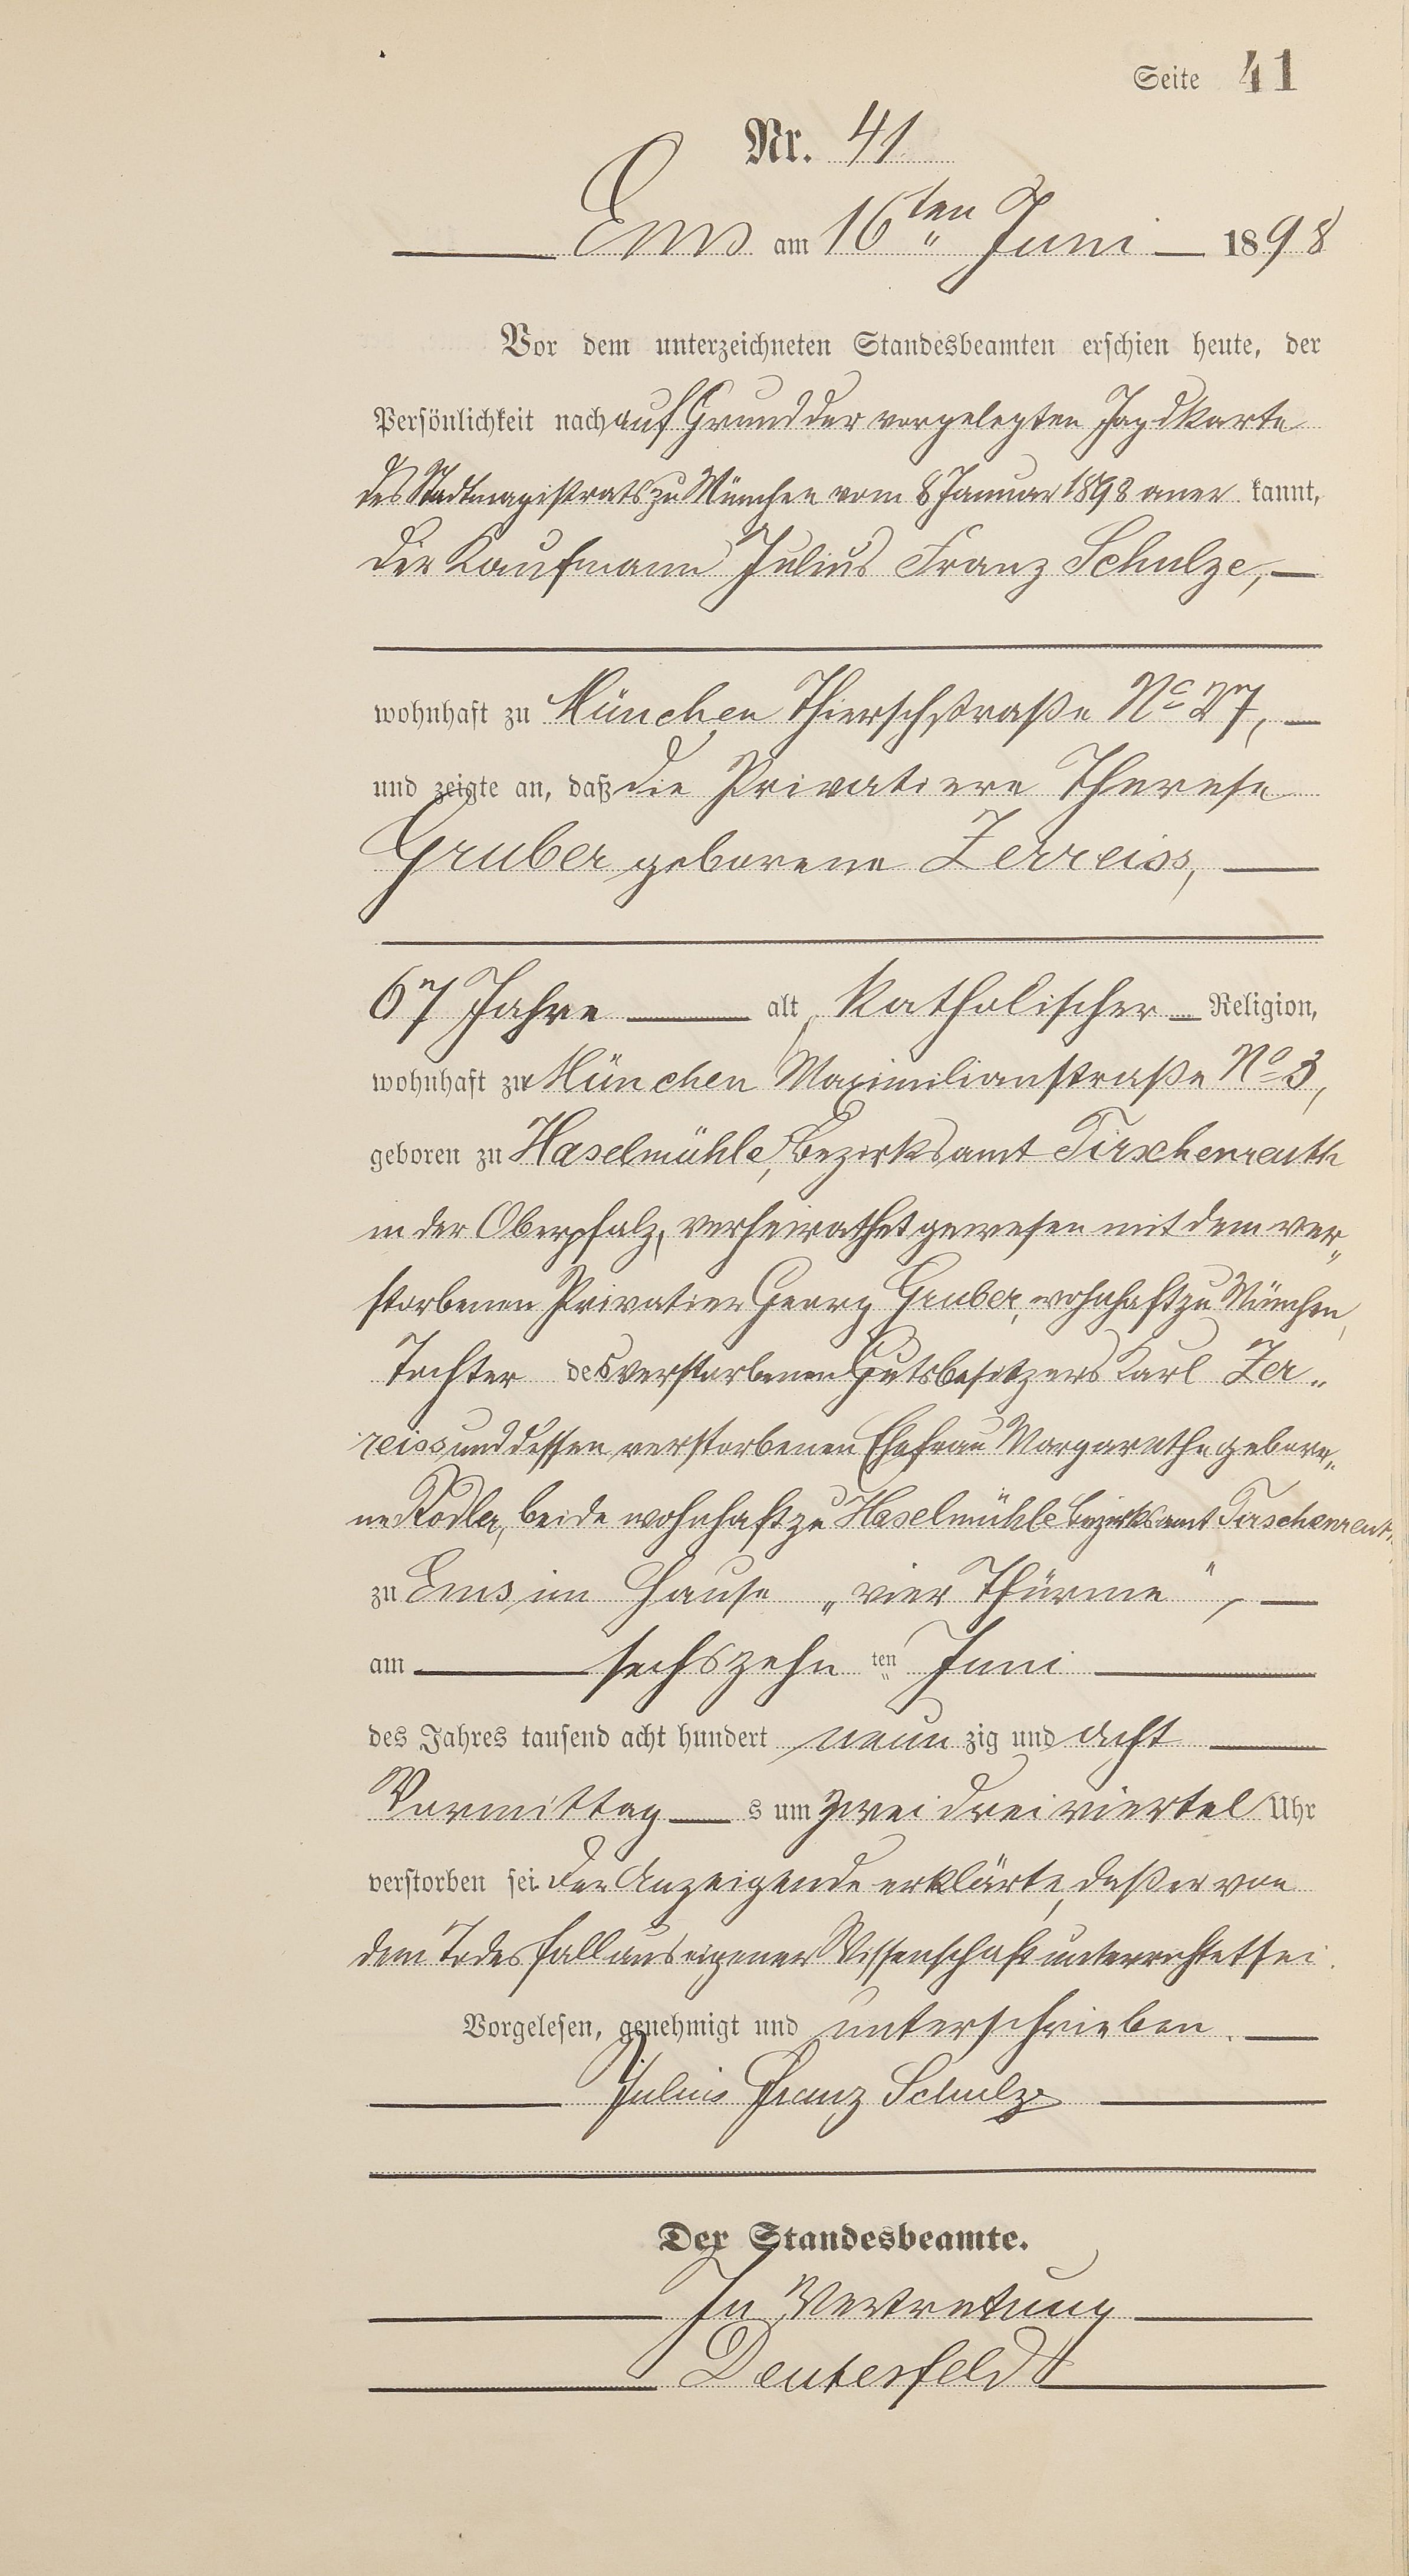 Seite 41
Nr. 41
Ems am 16ten Juni 1898
Vor dem unterzeichneten Standesbeamten erschien heute, der
Persönlichkeit nach auf Grund der vorgelegten Jagdkarte
des Stadtmagistrats zu München vom 8 Januar 1898 aner kannt,
der Kaufmann Julius Franz Schulze,
wohnhaft zu München Thierschstraße No 27,
und zeigte an, daß die Privatiere Therese
Gruber geborene Zerreiss,
67 Jahre alt, katholischer Religion,
wohnhaft zu München Maximilianstraße No 3,
geboren zu Haselmühle, Bezirksamt Tirschenreuth
in der Oberpfalz, verheirathet gewesen mit dem ver„
storbenen Privatier Georg Gruber, wohnhaft zu München,
Tochter des verstorbenen Gutsbesitzers Karl Zer„
reiss und dessen verstorbenen Ehefrau Margarethe gebore„
ne Rodler, beide wohnhaft zu Haselmühle Bezirksamt Tirschenreuth
zu Ems im Hause „vier Thürme",
am sechszehn ten Juni
des Jahres tausend acht hundert neun zig und acht
Vormittag s um zwei dreiviertel Uhr
verstorben sei. Der Anzeigende erklärte, daß er von
dem Todesfall aus eigener Wissenschaft unterrichtet sei.
Vorgelesen, genehmigt und unterschrieben.
Julius Franz Schulze
Der Standesbeamte.
In Vertretung
Deutesfeld